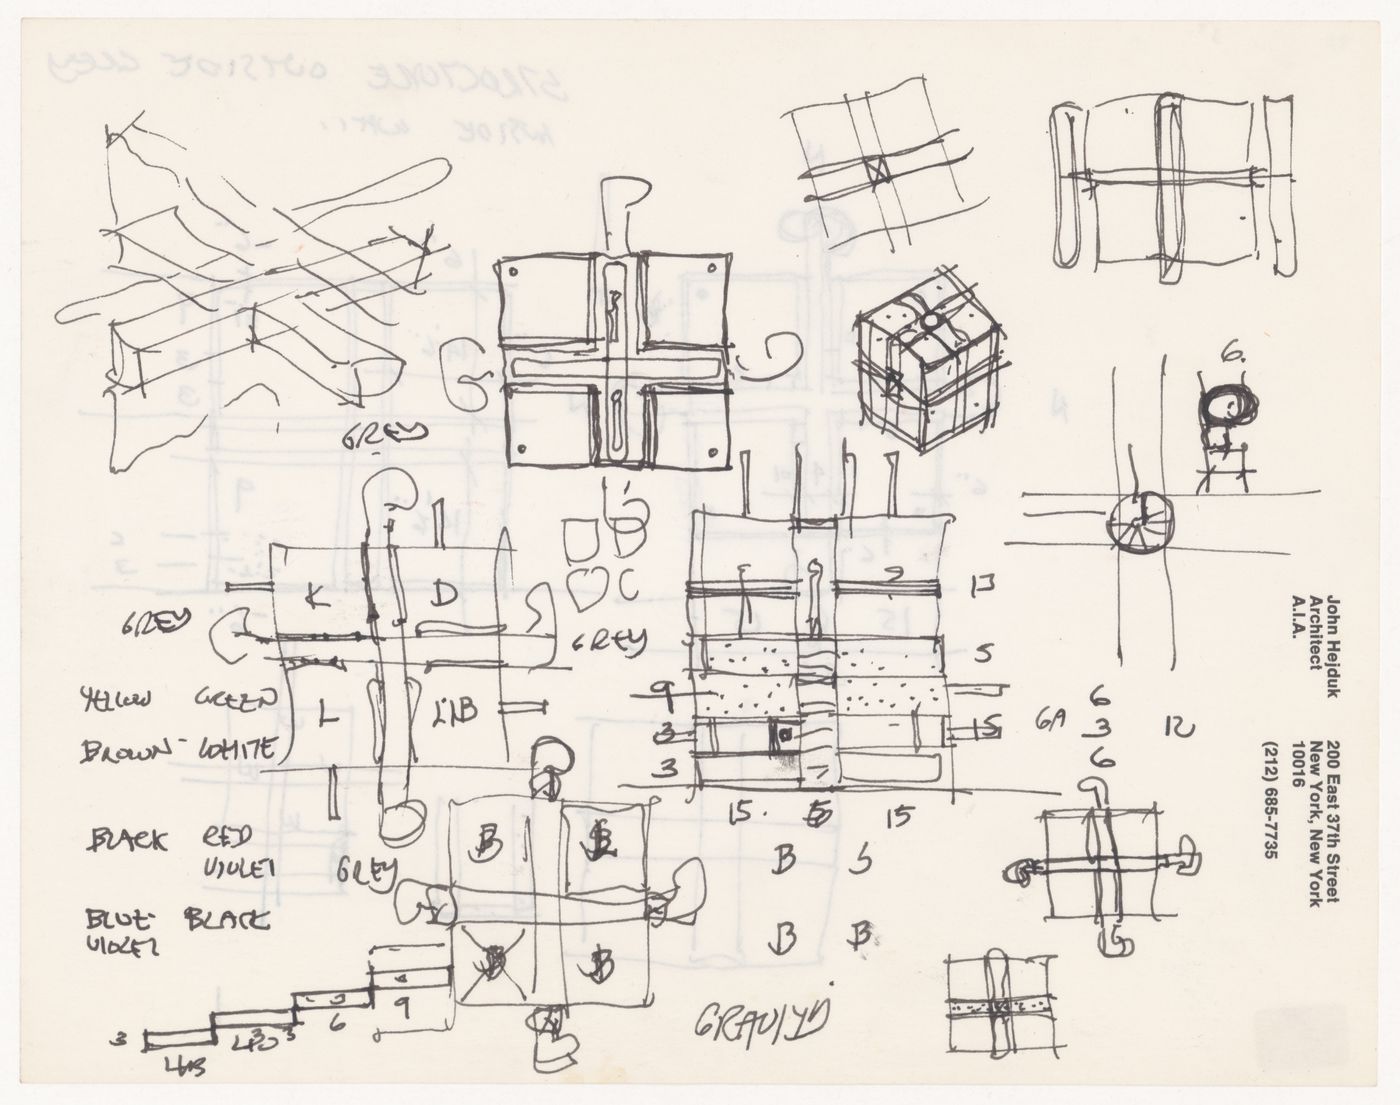 6.
GREY
K
D
C
GREY
GREY
13
YELLOW GREEN
L
L/LB
9
5
BROWN - WHITE
3
15
3
6
6A 3 12
6
15. 5 15
BLACK RED
VIOLET
GREY
B
B
B 5
BLUE - BLACK
VIOLET
B
B
B B
9
3
6
3
John Hejduk
Architect
A.I.A.
200 East 37th Street
New York, New York
10016
(212) 685-7735